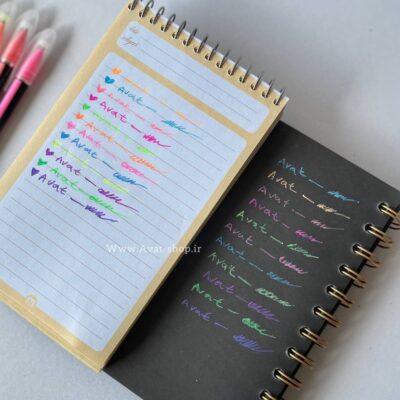 Avat
Avat
Avat
Avat
Avat
Avat
Avat
Avat
Avat
Avat
Www.Avat-shop.ir
Avat
Avat
Avat
Avat
Avat
Avat
Avat
Avat
Avat
Avat
Avat